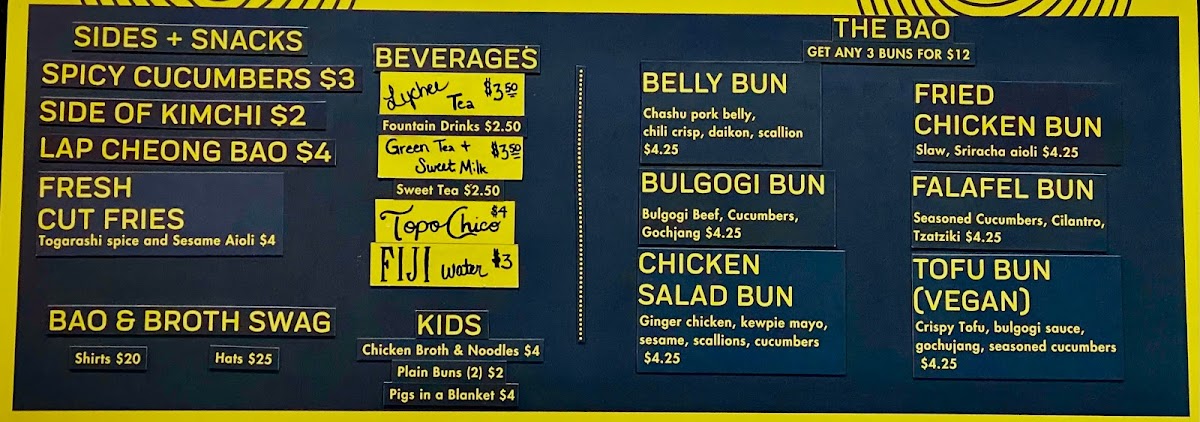 SIDES + SNACKS
SPICY CUCUMBERS $3
SIDE OF KIMCHI $2
LAP CHEONG BAO $4
FRESH
CUT FRIES
Togarashi spice and Sesame Aioli $4
BAO & BROTH SWAG
Shirts $20
Hats $25
BEVERAGES
Lychee $3.50
Tea
Fountain Drinks $2.50
Green Tea + $3.50
Sweet Milk
Sweet Tea $2.50
Topo Chico $4
FIJI Water $3
KIDS
Chicken Broth & Noodles $4
Plain Buns (2) $2
Pigs in a Blanket $4
THE BAO
GET ANY 3 BUNS FOR $12
BELLY BUN
Chashu pork belly,
chili crisp, daikon, scallion
$4.25
BULGOGI BUN
Bulgogi Beef, Cucumbers,
Gochjang $4.25
CHICKEN
SALAD BUN
Ginger chicken, kewpie mayo,
sesame, scallions, cucumbers
$4.25
FRIED
CHICKEN BUN
Slaw, Sriracha aioli $4.25
FALAFEL BUN
Seasoned Cucumbers, Cilantro,
Tzatziki $4.25
TOFU BUN
(VEGAN)
Crispy Tofu, bulgogi sauce,
gochujang, seasoned cucumbers
$4.25